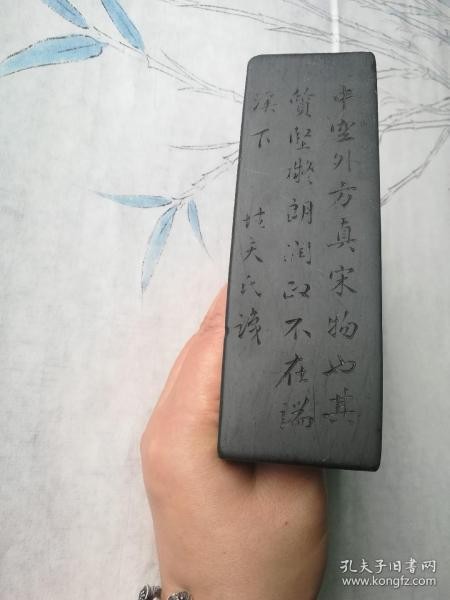 中空外方真宋物也其
質堅凝朗潤政不在端
溪下
坫天氏識
孔夫子旧书网
www.kongfz.com